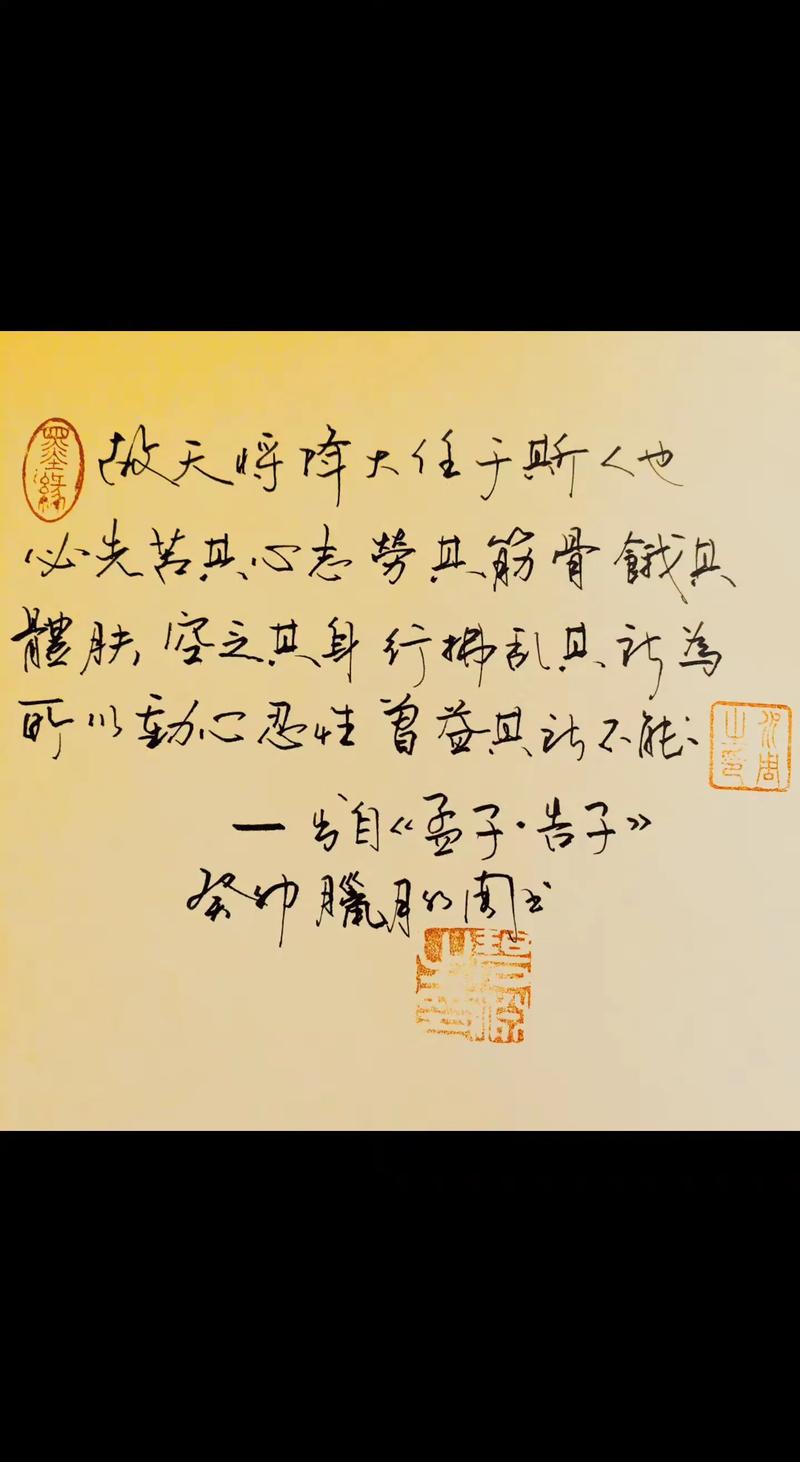 墨缘
故天将降大任于斯人也
必先苦其心志劳其筋骨餓其
體肤空乏其身行拂乱其所為
所以動心忍性曾益其所不能
一出自《孟子·告子》
癸卯臘月 周书